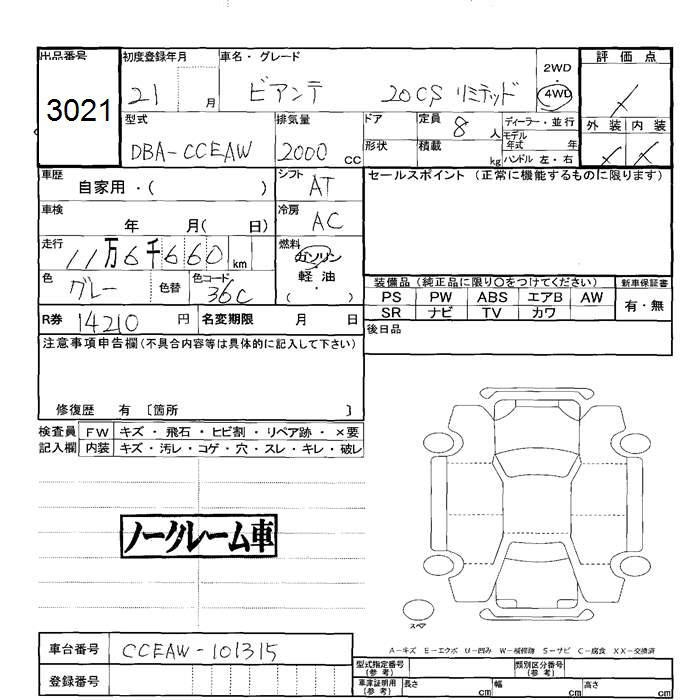 出品番号 初度登録年月 車名・グレード 2WD 評価点
3021 21 月 ビアンテ 20CS リミテッド 4WD
型式 排気量 ドア 定員 8 人 ディーラー・並行 外装 内装
モデル
年式 年
DBA-CCEAW 2000 cc 形状 積載 kg ハンドル 左・右
車歴 自家用・( ) シフト AT セールスポイント (正常に機能するものに限ります)
車検 年 月( 日) 冷房 AC
走行 11万6千660 km 燃料 ガソリン
軽・油
・( )
色 グレー 色替 色コード 36C 装備品 (純正品に限り○をつけてください) 新車保証書
PS PW ABS エアB AW 有・無
R券 14210 円 名変期限 月 日 SR ナビ TV カワ
後日品
注意事項申告欄(不具合内容等は具体的に記入して下さい)
修復歴 有 〔箇所 〕
検査員 FW キズ・飛石・ヒビ割・リペア跡・×要
記入欄 内装 キズ・汚レ・コゲ・穴・スレ・キレ・破レ
ノークレーム車
スペア
車台番号 CCEAW-101315 A-キズ E-エクボ U-凹み W-補修跡 S-サビ C-腐食 XX-交換済
型式指定番号 類別区分番号
(参考) (参考)
登録番号 車庫証明用 長さ 幅 高さ
(参考) cm cm cm